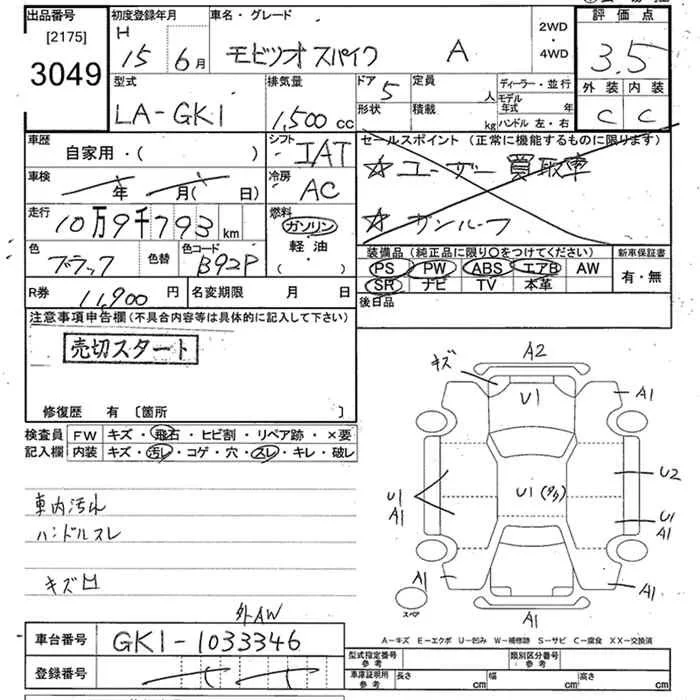 出品番号 初度登録年月 車名・グレード 評価点
[2175] H 2WD
3049 15年 6月 モビリオスパイク A ・ 3.5
4WD 外装 内装
型式 排気量 ドア 5 定員 人 ディーラー・並行 C C
LA-GK1 1,500 cc 形状 積載 kg モデル年式 年
ハンドル 左・右
車歴 シフト セールスポイント (正常に機能するものに限ります)
自家用・( ) IAT ☆ユーザー買取車
車検 年 月( 日) 冷房 AC
走行 10万9千793 km 燃料 ガソリン ☆サンルーフ
色 色替 色コード 軽油 装備品 (純正品に限り○をつけてください) 新車保証書
ブラック B92P ( ・ ) PS PW ABS エアB AW 有・無
R券 11,900 円 名変期限 月 日 SR ナビ TV 本革
後日品
注意事項申告欄(不具合内容等は具体的に記入して下さい)
売切スタート
修復歴 有 〔箇所 〕
検査員 FW キズ・飛石・ヒビ割・リペア跡・×要
記入欄 内装 キズ・汚レ・コゲ・穴・スレ・キレ・破レ
車内汚れ
ハンドルスレ
キズ凹
外AW
キズ A2
U1 A1
U1 A1 U1 U2
U1 A1
A1 A1
A1
スペア
A-キズ E-エクボ U-凹み W-補修跡 S-サビ C-腐食 XX-交換済
車台番号 GK1-1033346
登録番号
型式指定番号 参考 類別区分番号 参考
車庫証明用 参考 長さ cm 幅 cm 高さ cm